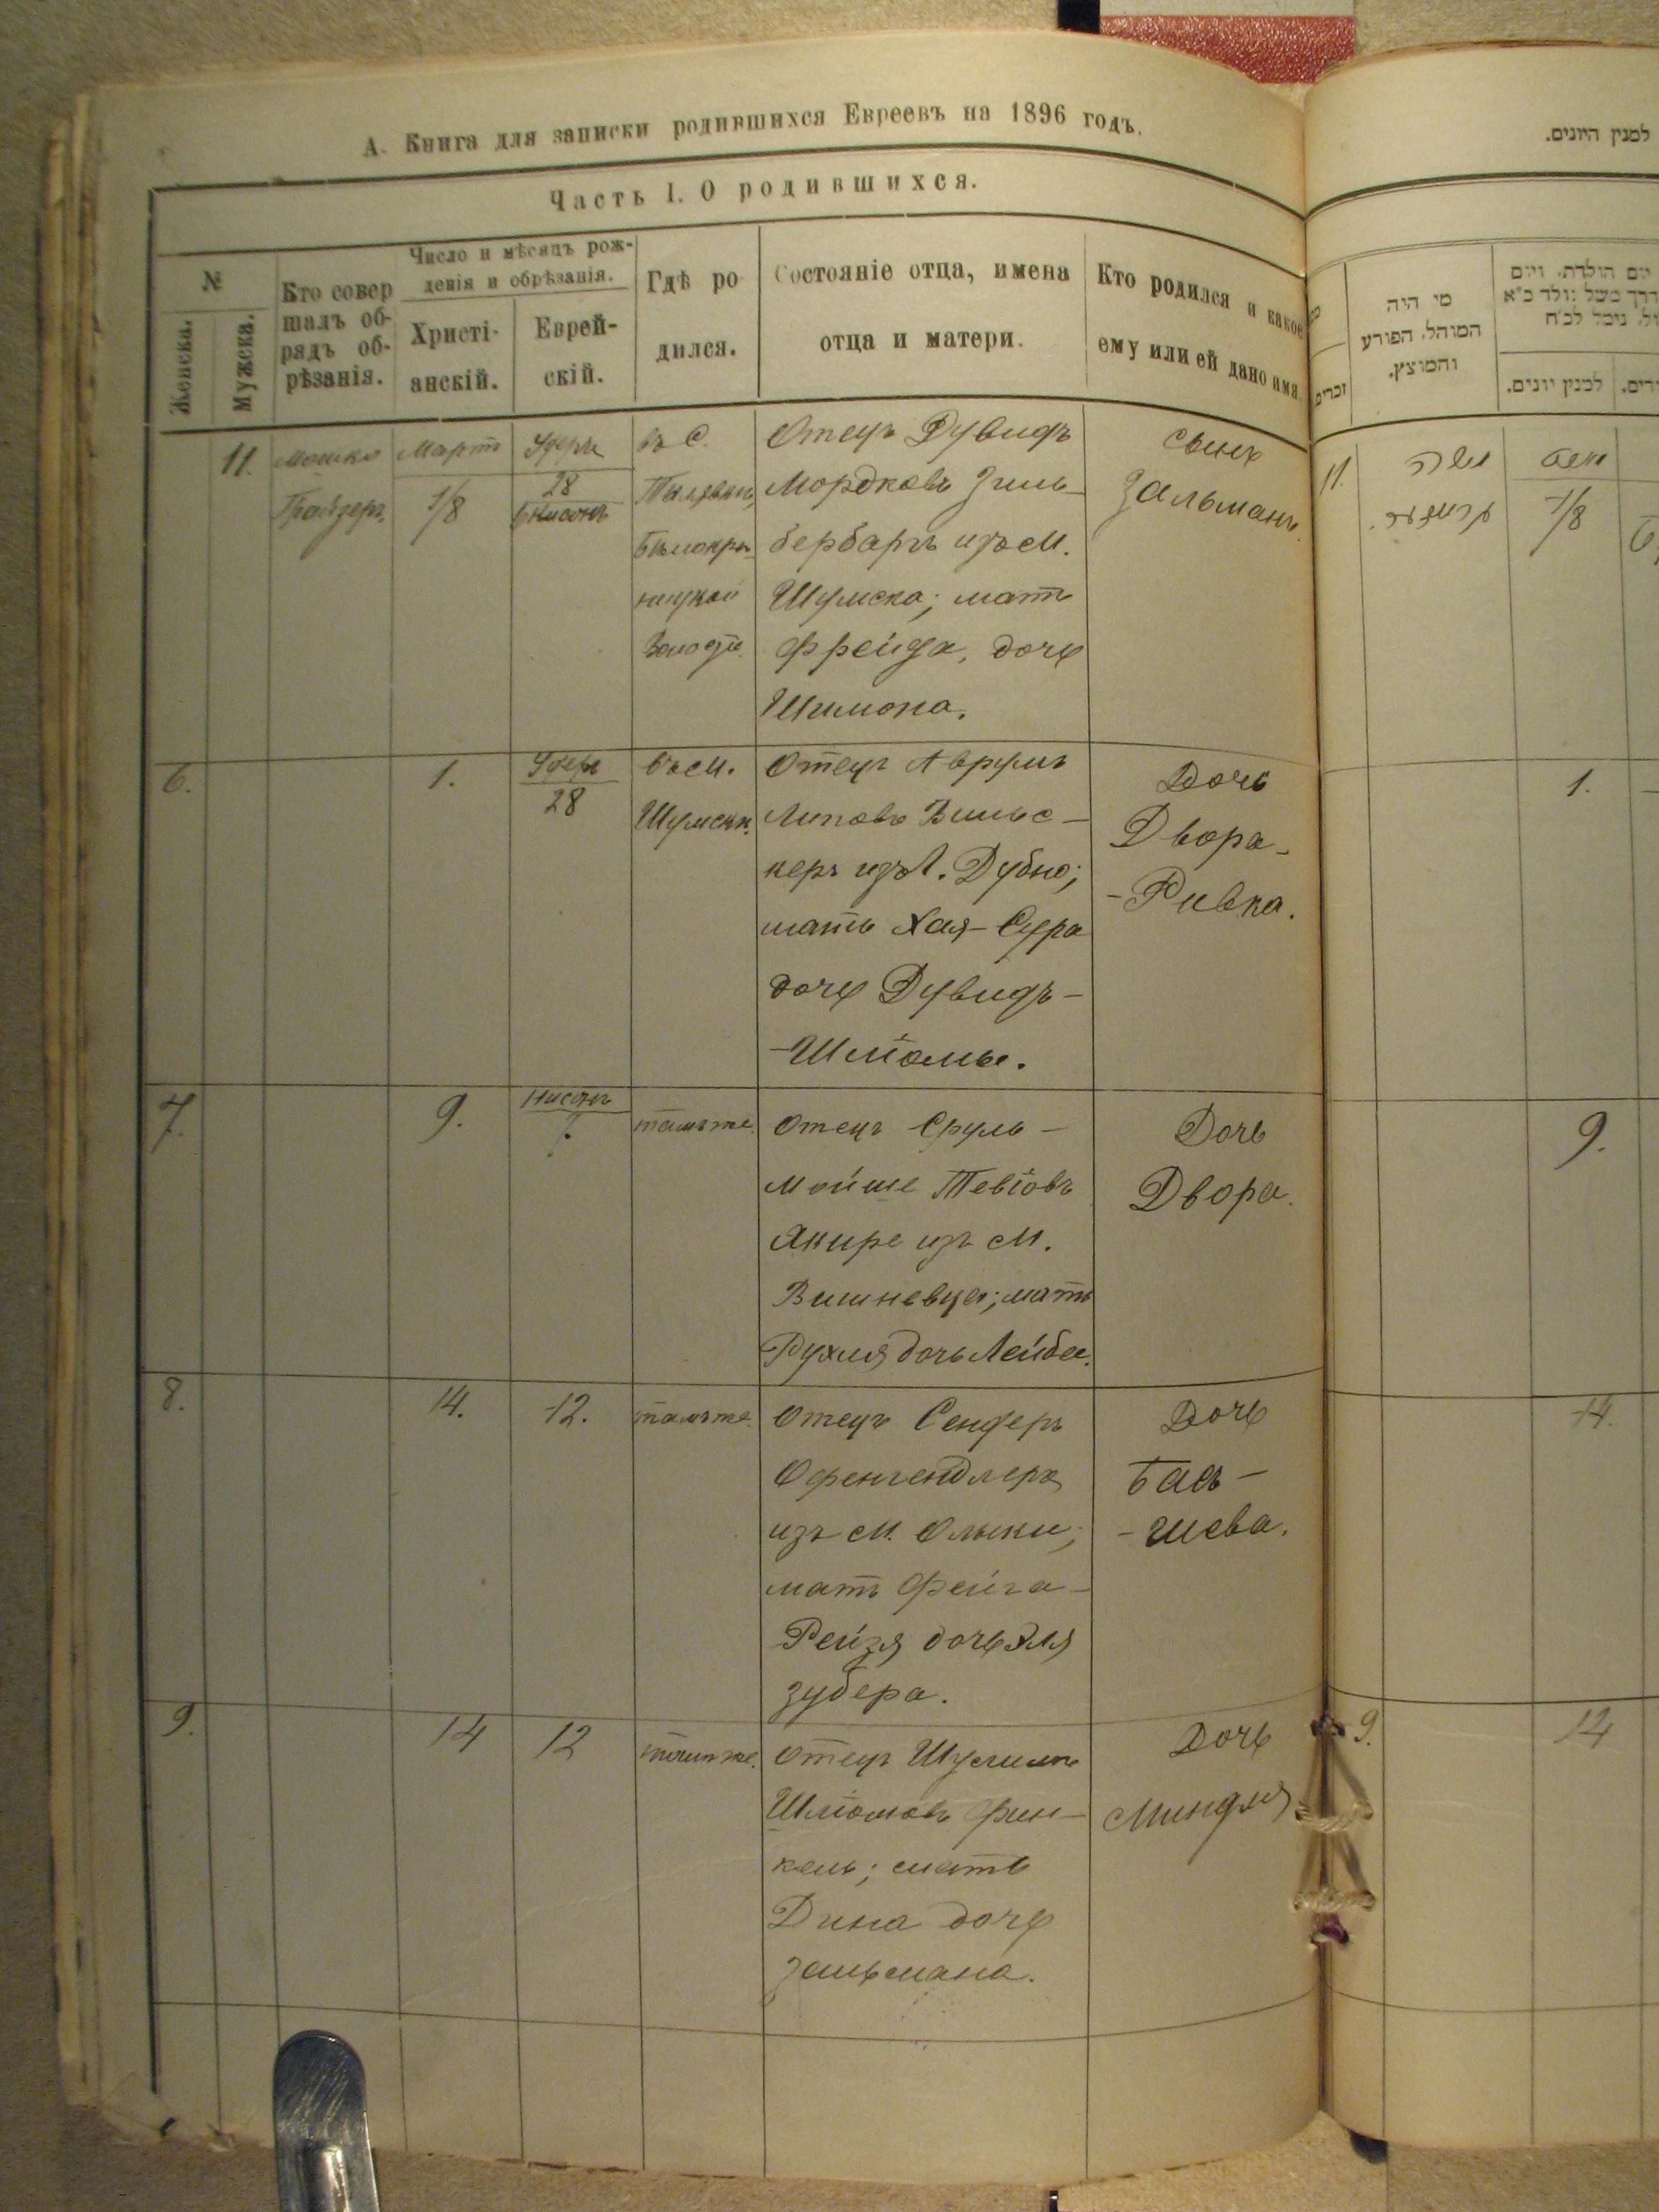 А. Книга для записки родившихся Евреевъ на 1896 годъ.
Часть I. О родившихся.
№
Женска.
Мужска.
Кто совер
шалъ об-
рядъ об-
рѣзанія.
Число и мѣсяцъ рож-
денія и обрѣзанія.
Христі-
анскій.
Еврей-
скій.
Гдѣ ро
дился.
Состояніе отца, имена
отца и матери.
Кто родился и какое
ему или ей дано имя.
11.
Мошко
Мартъ
1/8
28
6 Нисонъ
въ С.
Отецъ Дувидъ
Мордковъ Зиль-
бербаръ изъ М.
Шумска; мать
Фрейда, дочь
Шимона.
Сынъ
Зальманъ.
6.
1.
28
въ М.
Шумскѣ.
Отецъ Аврумъ
Липовъ
изъ Дубно;
мать Хая-Сура
дочь Дувидъ-
-Шліомы.
Дочь
Двора-
-Ривка.
7.
9.
Нисонъ
7.
тамъ же.
Отецъ Сруль-
Мойше Тевіовъ
Якире изъ М.
Вишневца; мать
Рухля дочь Лейбы.
Дочь
Двора.
8.
14.
12.
тамъ же.
Отецъ Сендеръ
Офенгендлеръ
изъ М. Олыки;
мать Фейга-
Рейзя дочь Эля
зубера.
Дочь
Бась-
-шева.
9.
14
12
тамъ же.
Отецъ
Шліомовъ Фин-
кель; мать
Дина дочь
Зальмана.
Дочь
Миндля
למנין היונים.
מי היה
המוהל, הפורע
והמוצץ.
יום הולדת, ויום
למנין יונים.
זכרים
11.
משה
1/8
1.
9.
14.
9.
14